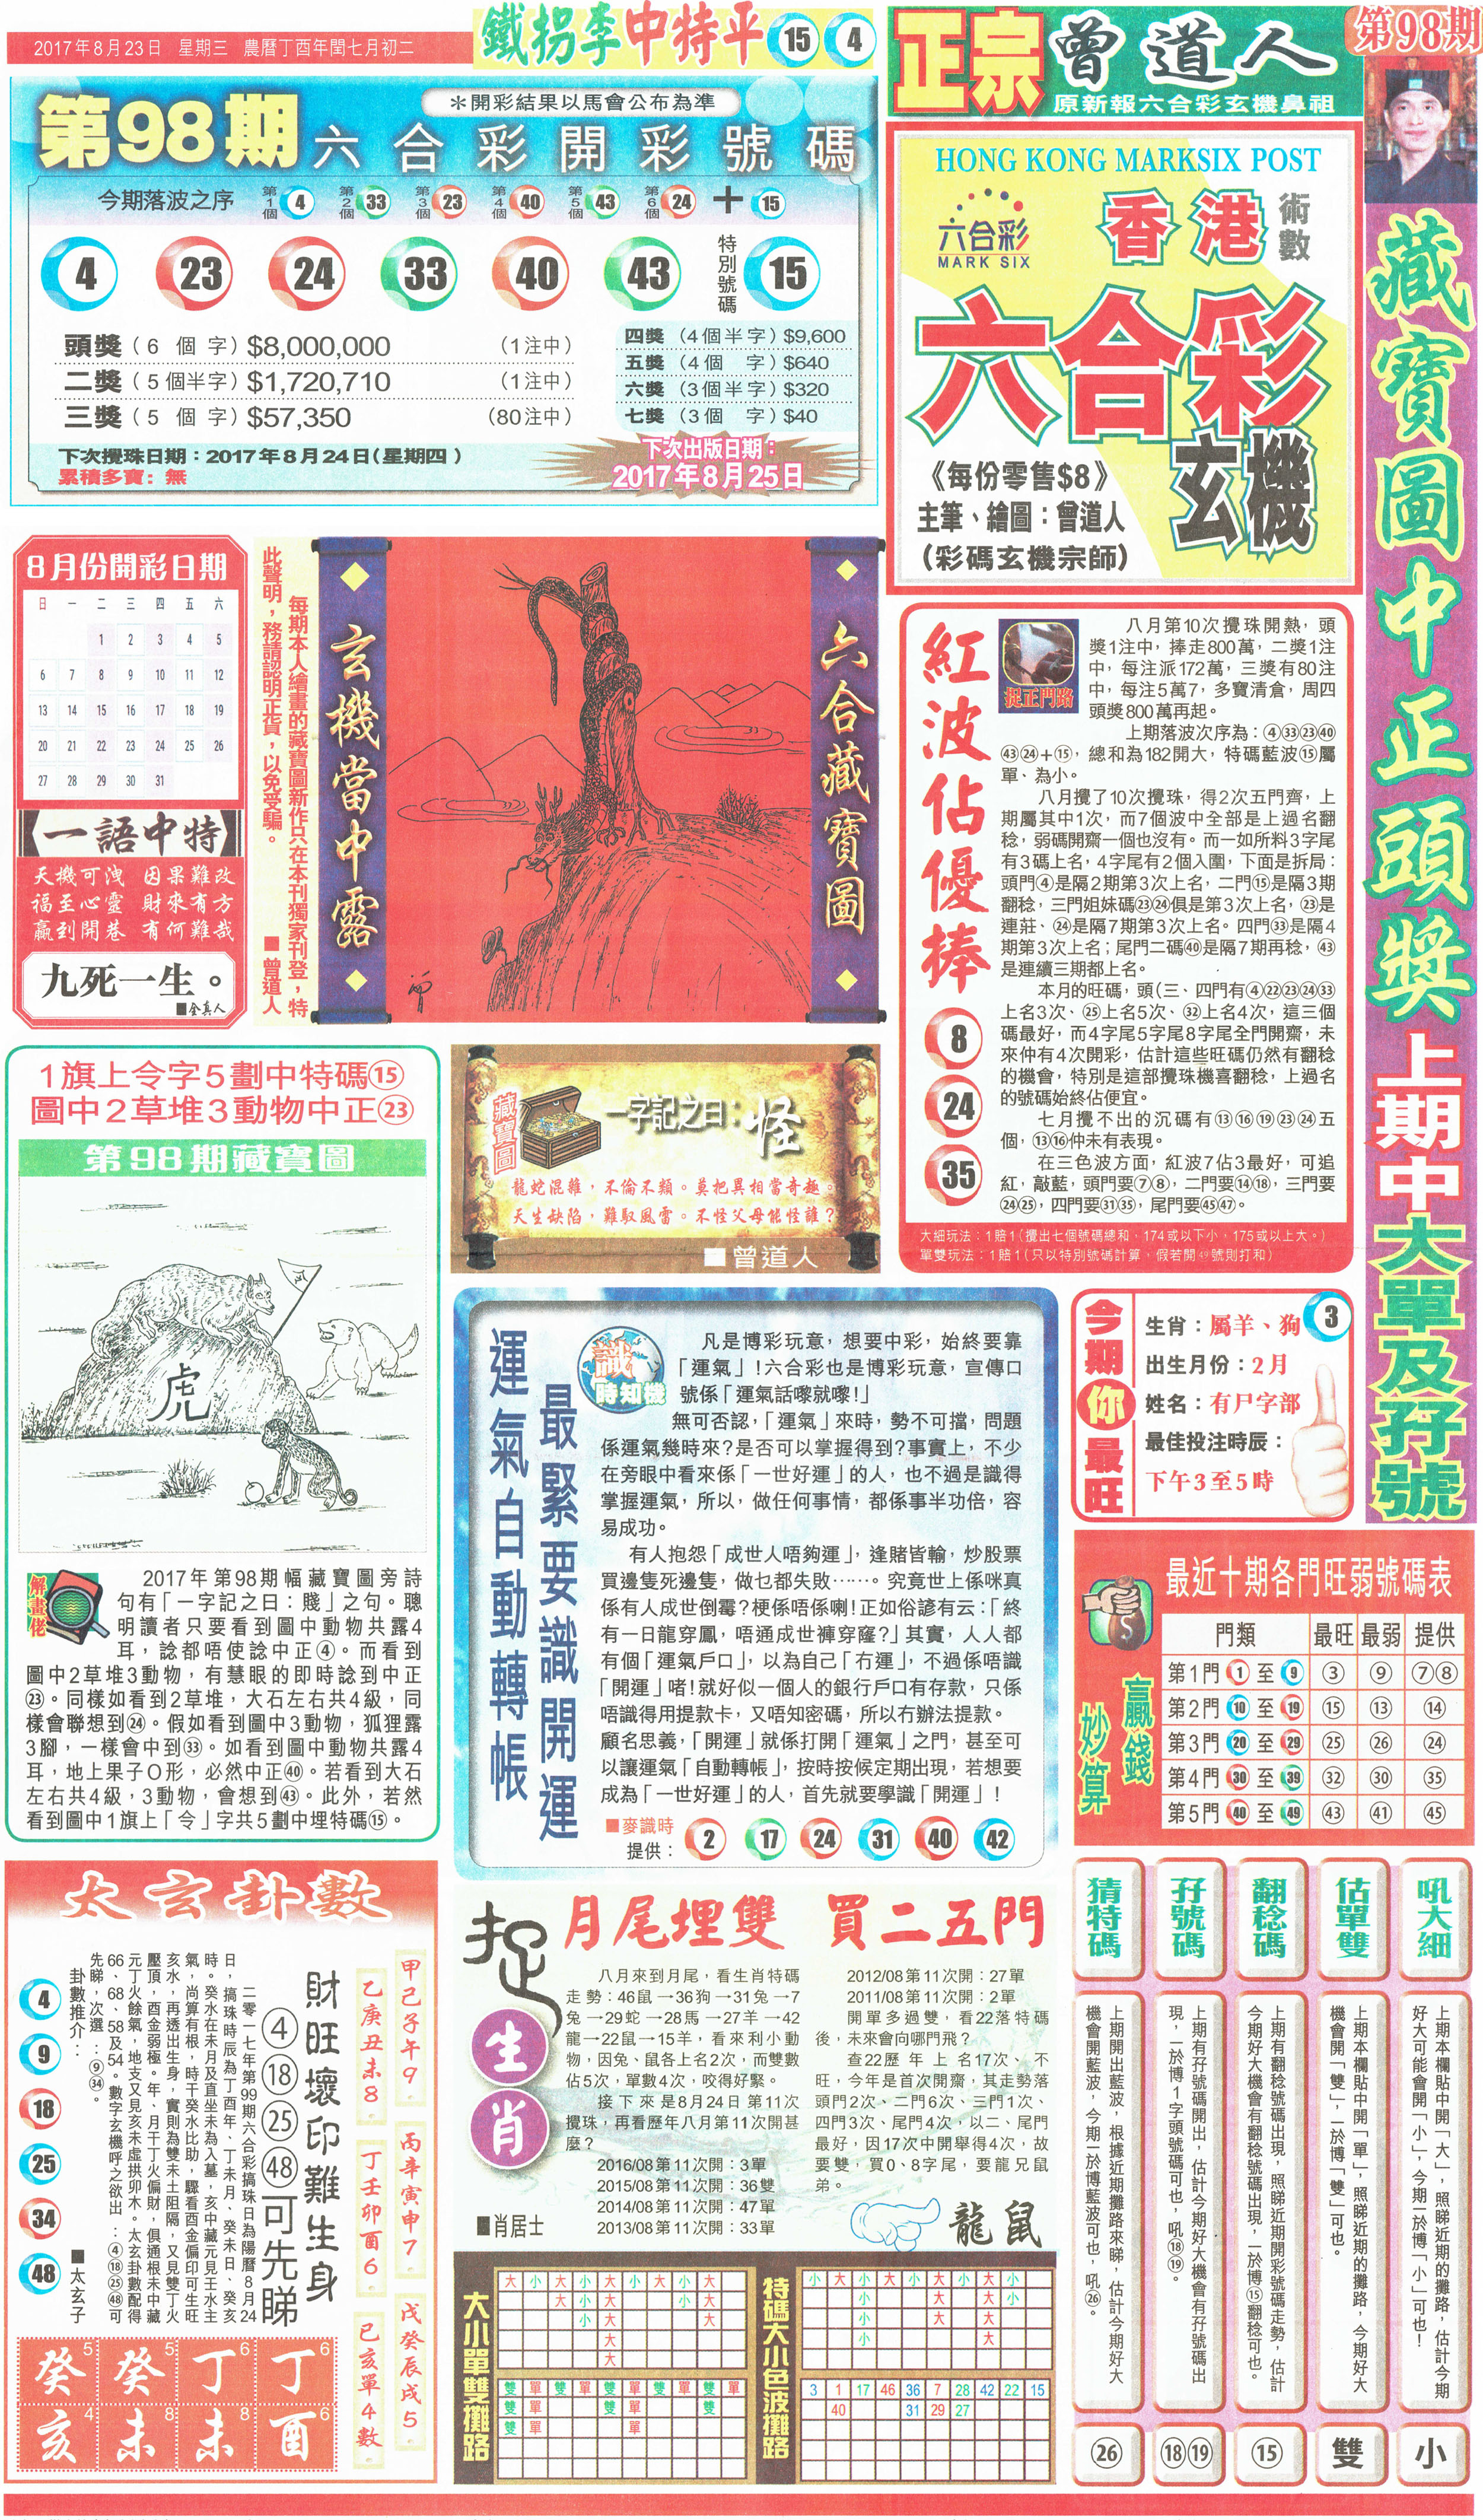 2017年8月23日　星期三　農曆丁酉年閏七月初二
鐵拐李中特平 15 4
第98期六合彩開彩號碼
＊開彩結果以馬會公布為準
今期落波之序 第1個 4 第2個 33 第3個 23 第4個 40 第5個 43 第6個 24 + 15
4 23 24 33 40 43 特別號碼 15
頭獎（6 個 字）$8,000,000 （1注中）
二獎（5個半字）$1,720,710 （1注中）
三獎（5 個 字）$57,350 （80注中）
四獎（4個半字）$9,600
五獎（4個　字）$640
六獎（3個半字）$320
七獎（3個　字）$40
下次攪珠日期：2017年8月24日（星期四）
累積多寶：無
下次出版日期：
2017年8月25日
正宗曾道人
原新報六合彩玄機鼻祖
第98期
HONG KONG MARKSIX POST
六合彩
MARK SIX
香港
術數
六合彩
玄機
《每份零售$8》
主筆、繪圖：曾道人
（彩碼玄機宗師）
藏寶圖中正頭獎
上期中大單及孖號
8月份開彩日期
日 一 二 三 四 五 六
1 2 3 4 5
6 7 8 9 10 11 12
13 14 15 16 17 18 19
20 21 22 23 24 25 26
27 28 29 30 31
一語中特
天機可洩　因果難改
福至心靈　財來有方
贏到開巷　有何難哉
九死一生。
■全真人
每期本人繪畫的藏寶圖新作只在本刊獨家刊登，特
此聲明，務請認明正貨，以免受騙。
■曾道人
六合藏寶圖
玄機當中露
曾
紅波佔優捧
8
24
35
捉正門路
八月第10次攪珠開熱，頭
獎1注中，捧走800萬，二獎1注
中，每注派172萬，三獎有80注
中，每注5萬7，多寶清倉，周四
頭獎800萬再起。
上期落波次序為：④㉝㉓㊵
㊸㉔+⑮，總和為182開大，特碼藍波⑮屬
單、為小。
八月攪了10次攪珠，得2次五門齊，上
期屬其中1次，而7個波中全部是上過名翻
稔，弱碼開齋一個也沒有。而一如所料3字尾
有3碼上名，4字尾有2個入圍，下面是拆局：
頭門④是隔2期第3次上名，二門⑮是隔3期
翻稔，三門姐妹碼㉓㉔俱是第3次上名，㉓是
連莊、㉔是隔7期第3次上名。四門㉝是隔4
期第3次上名；尾門二碼㊵是隔7期再稔，㊸
是連續三期都上名。
本月的旺碼，頭（三、四門有④㉒㉓㉔㉝
上名3次、㉕上名5次、㉜上名4次，這三個
碼最好，而4字尾5字尾8字尾全門開齋，未
來仲有4次開彩，估計這些旺碼仍然有翻稔
的機會，特別是這部攪珠機喜翻稔，上過名
的號碼始終佔便宜。
七月攪不出的沉碼有⑬⑯⑲㉓㉔五
個，⑬⑯仲未有表現。
在三色波方面，紅波7佔3最好，可追
紅，敲藍，頭門要⑦⑧，二門要⑭⑱，三門要
㉔㉕，四門要㉛㉟，尾門要㊺㊼。
大細玩法：1賠1（攪出七個號碼總和，174或以下小，175或以上大。）
單雙玩法：1賠1（只以特別號碼計算，假若開㊾號則打和）
1旗上令字5劃中特碼⑮
圖中2草堆3動物中正㉓
第98期藏寶圖
虎
令
解畫佬
2017年第98期幅藏寶圖旁詩
句有「一字記之日：賤」之句。聰
明讀者只要看到圖中動物共露4
耳，諗都唔使諗中正④。而看到
圖中2草堆3動物，有慧眼的即時諗到中正
㉓。同樣如看到2草堆，大石左右共4級，同
樣會聯想到㉔。假如看到圖中3動物，狐狸露
3腳，一樣會中到㉝。如看到圖中動物共露4
耳，地上果子O形，必然中正㊵。若看到大石
左右共4級，3動物，會想到㊸。此外，若然
看到圖中1旗上「令」字共5劃中埋特碼⑮。
藏寶圖
一字記之曰：怪
龍蛇混雜，不倫不類。莫把異相當奇趣。
天生缺陷，難馭風雷。不怪父母能怪誰？
■曾道人
最緊要識開運
運氣自動轉帳
識時知機
凡是博彩玩意，想要中彩，始終要靠
「運氣」！六合彩也是博彩玩意，宣傳口
號係「運氣話嚟就嚟！」
無可否認，「運氣」來時，勢不可擋，問題
係運氣幾時來？是否可以掌握得到？事實上，不少
在旁眼中看來係「一世好運」的人，也不過是識得
掌握運氣，所以，做任何事情，都係事半功倍，容
易成功。
有人抱怨「成世人唔夠運」，逢賭皆輸，炒股票
買邊隻死邊隻，做乜都失敗……。究竟世上係咪真
係有人成世倒霉？梗係唔係喇！正如俗諺有云：「終
有一日龍穿鳳，唔通成世褲穿窿？」其實，人人都
有個「運氣戶口」，以為自己「冇運」，不過係唔識
「開運」啫！就好似一個人的銀行戶口有存款，只係
唔識得用提款卡，又唔知密碼，所以冇辦法提款。
顧名思義，「開運」就係打開「運氣」之門，甚至可
以讓運氣「自動轉帳」，按時按候定期出現，若想要
成為「一世好運」的人，首先就要學識「開運」！
■麥識時
提供： 2 17 24 31 40 42
今期你最旺
3
生肖：屬羊、狗
出生月份：2月
姓名：有尸字部
最佳投注時辰：
下午3至5時
最近十期各門旺弱號碼表
贏錢妙算
門類 最旺 最弱 提供
第1門 1 至 9 ③ ⑨ ⑦⑧
第2門 10 至 19 ⑮ ⑬ ⑭
第3門 20 至 29 ㉕ ㉖ ㉔
第4門 30 至 39 ㉜ ㉚ ㉟
第5門 40 至 49 ㊸ ㊶ ㊺
太玄卦數
甲己子午9　丙辛寅申7　戊癸辰戌5
乙庚丑未8　丁壬卯酉6　巳亥單4數
財旺壞印難生身
④⑱㉕㊽可先睇
二零一七年第99期六合彩搞珠日為陽曆8月24
日，搞珠時辰為丁酉年、丁未月、癸未日、癸亥
時。癸水在未月及直坐未為入墓，亥中藏元見壬水主
氣，尚算有根，時干癸水比助，驟看酉金偏印可生旺
亥水，再透出生身，實則為雙未土阻隔，又見雙丁火
壓頂，酉金弱極。年、月干丁火偏財，俱通根未中藏
元丁火餘氣，地支又見亥未虛拱卯木。太玄卦數配得
66、68、58及54。數字玄機呼之欲出：④⑱㉕㊽可
先睇，次選：⑨㉞。
卦數推介：
4
9
18
25
34
48
■太玄子
癸5 癸5 丁6 丁6
亥4 未8 未8 酉6
捉生肖
月尾埋雙　買二五門
八月來到月尾，看生肖特碼
走勢：46鼠→36狗→31兔→7
兔→29蛇→28馬→27羊→42
龍→22鼠→15羊，看來利小動
物，因兔、鼠各上名2次，而雙數
佔5次，單數4次，咬得好緊。
接下來是8月24日第11次
攪珠，再看歷年八月第11次開甚
麼？
2016/08第11次開：3單
2015/08第11次開：36雙
2014/08第11次開：47單
2013/08第11次開：33單
2012/08第11次開：27單
2011/08第11次開：2單
開單多過雙，看22落特碼
後，未來會向哪門飛？
查22歷年上名17次、不
旺，今年是首次開齋，其走勢落
頭門2次、二門6次、三門1次、
四門3次、尾門4次，以二、尾門
最好，因17次中開舉得4次，故
要雙，買0、8字尾，要龍兄鼠
弟。
■肖居士
龍鼠
大小單雙攤路
大 小 大 小 大 小 大 小 大
大 小 大 小 大
小 大 大
大
大
雙 單 雙 單 雙 單 雙 單 雙 單
雙 單 雙 單 雙
雙 單 單
特碼大小色波攤路
小 大 小 大 小 大 小 大 小
小 大 大 小
小 大 大
小 大
3 1 17 46 36 7 28 42 22 15
40 31 29 27
吼大細
上期本欄貼中開「大」，照睇近期的攤路，估計今期
好大可能會開「小」，今期一於博「小」可也！
小
估單雙
上期本欄貼中開「單」，照睇近期的攤路，今期好大
機會開「雙」，一於博「雙」可也。
雙
翻稔碼
上期有翻稔號碼出現，照睇近期開彩號碼走勢，估計
今期好大機會有翻稔號碼出現，一於博⑮翻稔可也。
⑮
孖號碼
上期有孖號碼開出，估計今期好大機會有孖號碼出
現，一於博1字頭號碼可也，吼⑱⑲。
⑱⑲
猜特碼
上期開出藍波，根據近期攤路來睇，估計今期好大
機會開藍波，今期一於博藍波可也，吼㉖。
㉖